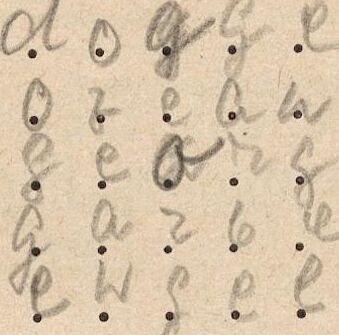 d o g g e
o z e a w
g e o z g
g a z b e
e w g e e